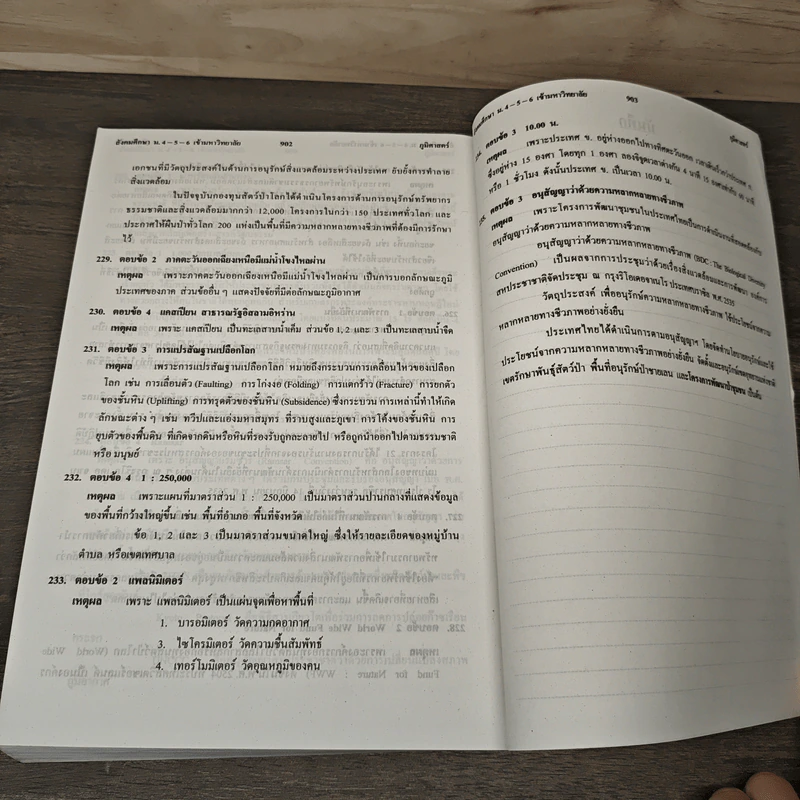 สังคมศึกษา ม. 4 – 5 – 6 เข้ามหาวิทยาลัย 902 ภูมิศาสตร์
เอกชนที่มีวัตถุประสงค์ในด้านการอนุรักษ์สิ่งแวดล้อมระหว่างประเทศ ยับยั้งการทำลาย
สิ่งแวดล้อม
ในปัจจุบันกองทุนสัตว์ป่าโลกได้ดำเนินโครงการด้านการอนุรักษ์ทรัพยากร
ธรรมชาติและสิ่งแวดล้อมมากกว่า 12,000 โครงการในกว่า 150 ประเทศทั่วโลก และ
ประกาศให้ผืนป่าทั่วโลก 200 แห่งเป็นพื้นที่มีความหลากหลายทางชีวภาพที่ต้องมีการรักษา
ไว้
229. ตอบข้อ 2 ภาคตะวันออกเฉียงเหนือมีแม่น้ำโขงไหลผ่าน
เหตุผล เพราะภาคตะวันออกเฉียงเหนือมีแม่น้ำโขงไหลผ่าน เป็นการบอกลักษณะภูมิ
ประเทศของภาค ส่วนข้ออื่น ๆ แสดงปัจจัยที่มีต่อลักษณะภูมิอากาศ
230. ตอบข้อ 4 แคสเปียน สาธารณรัฐอิสลามอิหร่าน
เหตุผล เพราะ แคสเปียน เป็นทะเลสาบน้ำเค็ม ส่วนข้อ 1, 2 และ 3 เป็นทะเลสาบน้ำจืด
231. ตอบข้อ 3 การแปรสัณฐานเปลือกโลก
เหตุผล เพราะการแปรสัณฐานเปลือกโลก หมายถึงกระบวนการเคลื่อนไหวของเปลือก
โลก เช่น การเลื่อนตัว (Faulting) การโก่งงอ (Folding) การแตกร้าว (Fracture) การยกตัว
ของชั้นหิน (Uplifting) การทรุดตัวของชั้นหิน (Subsidence) ซึ่งกระบวนการเหล่านี้ทำให้เกิด
ลักษณะต่าง ๆ เช่น ทวีปและแอ่งมหาสมุทร ที่ราบสูงและภูเขา การโค้งของชั้นหิน การ
ยุบตัวของพื้นดิน ที่เกิดจากดินหรือหินที่รองรับถูกละลายไป หรือถูกนำออกไปตามธรรมชาติ
หรือ มนุษย์
232. ตอบข้อ 4 1 : 250,000
เหตุผล เพราะแผนที่มาตราส่วน 1 : 250,000 เป็นมาตราส่วนปานกลางที่แสดงข้อมูล
ของพื้นที่กว้างใหญ่ขึ้น เช่น พื้นที่อำเภอ พื้นที่จังหวัด
ข้อ 1, 2 และ 3 เป็นมาตราส่วนขนาดใหญ่ ซึ่งให้รายละเอียดของหมู่บ้าน
ตำบล หรือเขตเทศบาล
233. ตอบข้อ 2 แพลนิมิเตอร์
เหตุผล เพราะ แพลนิมิเตอร์ เป็นแผ่นจุดเพื่อหาพื้นที่
1. บารอมิเตอร์ วัดความกดอากาศ
3. ไซโครมิเตอร์ วัดความชื้นสัมพัทธ์
4. เทอร์โมมิเตอร์ วัดอุณหภูมิของคน
สังคมศึกษา ม. 4 – 5 – 6 เข้ามหาวิทยาลัย 903 ภูมิศาสตร์
ตอบข้อ 3 10.00 น.
เหตุผล เพราะประเทศ ข. อยู่ห่างออกไปทางทิศตะวันออก
ซึ่งอยู่ห่าง 15 องศา โดยทุก 1 องศา ลองจิจูดเวลาต่างกัน 4 นาที 15 องศาต่างกัน 60 นาที
หรือ 1 ชั่วโมง ดังนั้นประเทศ ข. เป็นเวลา 10.00 น.
ตอบข้อ 3 อนุสัญญาว่าด้วยความหลากหลายทางชีวภาพ
เหตุผล เพราะโครงการพัฒนาป่าชุมชนในประเทศไทยเป็นการดำเนินงานที่สอดคล้องกับ
อนุสัญญาว่าด้วยความหลากหลายทางชีวภาพ
อนุสัญญาว่าด้วยความหลากหลายทางชีวภาพ (BDC : The Biological Diversity
Convention) เป็นผลจากการประชุมว่าด้วยเรื่องสิ่งแวดล้อมและการพัฒนา
สหประชาชาติจัดประชุม ณ กรุงริโอเดอจาเนโร ประเทศบราซิล พ.ศ. 2535
วัตถุประสงค์ เพื่ออนุรักษ์ความหลากหลายทางชีวภาพ ใช้ประโยชน์จากความ
หลากหลายทางชีวภาพอย่างยั่งยืน
ประเทศไทยได้ดำเนินการตามอนุสัญญาฯ โดยจัดทำนโยบายอนุรักษ์และใช้
ประโยชน์จากความหลากหลายทางชีวภาพอย่างยั่งยืน
เขตรักษาพันธุ์สัตว์ป่า พื้นที่อนุรักษ์ป่าชายเลน และโครงการพัฒนาป่าชุมชน เป็นต้น